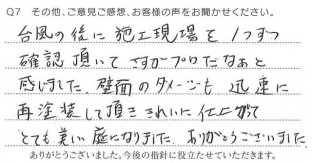 Q7 その他、ご意見ご感想、お客様の声をお聞かせください。
台風の後に施工現場を1つずつ
確認頂いて さすがプロだなぁと
感じました。壁面のダメージも 迅速に
再塗装して頂き きれいに 仕上がって
とても美しい庭になりました。ありがとうございました
ありがとうございました。今後の指針に役立たせていただきます。